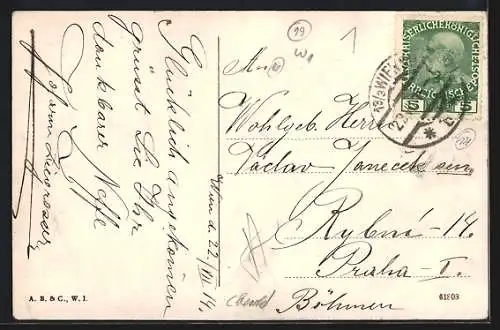 Glücklich angekommen
grüsst Sie Ihr
dankbarer Neffe
Wien d. 22. VII. 14.
A. B. & C., W. I.
19
W1
1
KAISERLICHE KÖNIGLICHE ÖSTERR
5 5
13/3 WIEN
An
Wohlgeb. Herrn
Václav Janeček sen.
Rybná-14.
Praha-I.
Böhmen
61803